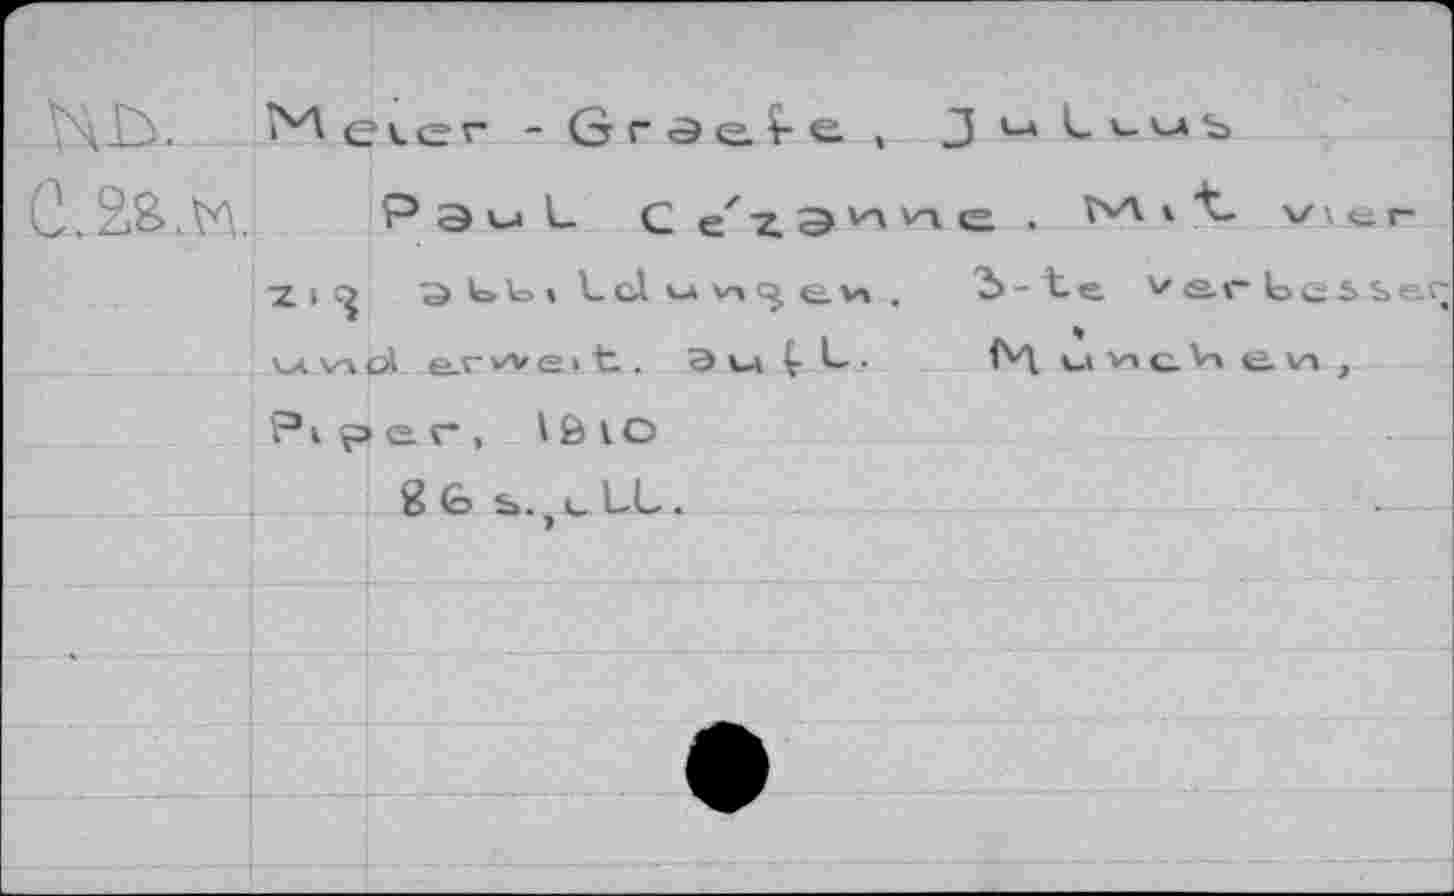 ND. Meier - Graefe, Julius
C.28.M. Paul Cézanne. Mit vier
zig abbildungen. 3-te verbesser
und erweit. aufl. München,
Piper, 1910
86 s., ill.